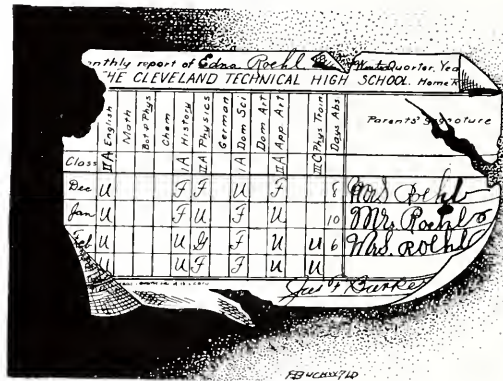 onthly report of Edna Roehl Winter Quarter, Yea
THE CLEVELAND TECHNICAL HIGH SCHOOL. Home R
English Math Bot & Phys Chem History Physics German Dom Sci Dom Art App. Art Phys Train. Days Abs Parents' Signature
Class II A I A II A I A II A III C
Dec U F F U F 8 Mrs Roehl
Jan U F U F U 10 Mrs Roehl
Feb U U G F U U 6 Mrs. ROEHL
U U F F U U
Jas F Burke
BUCHWALD